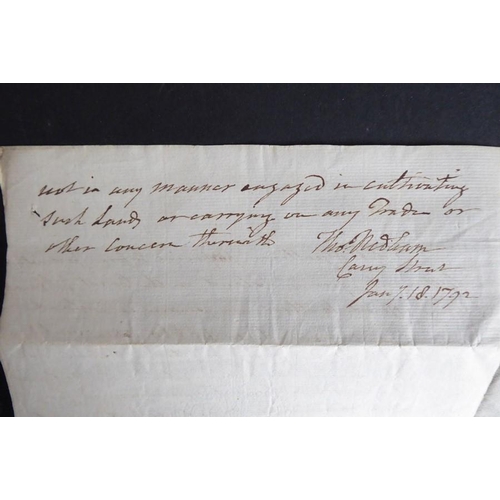 not in any manner engaged in cultivating
such Lands or carrying on any Trade or
other Concern therewith Tho.s Nedham
Carey Street
Jan.y 18. 1792